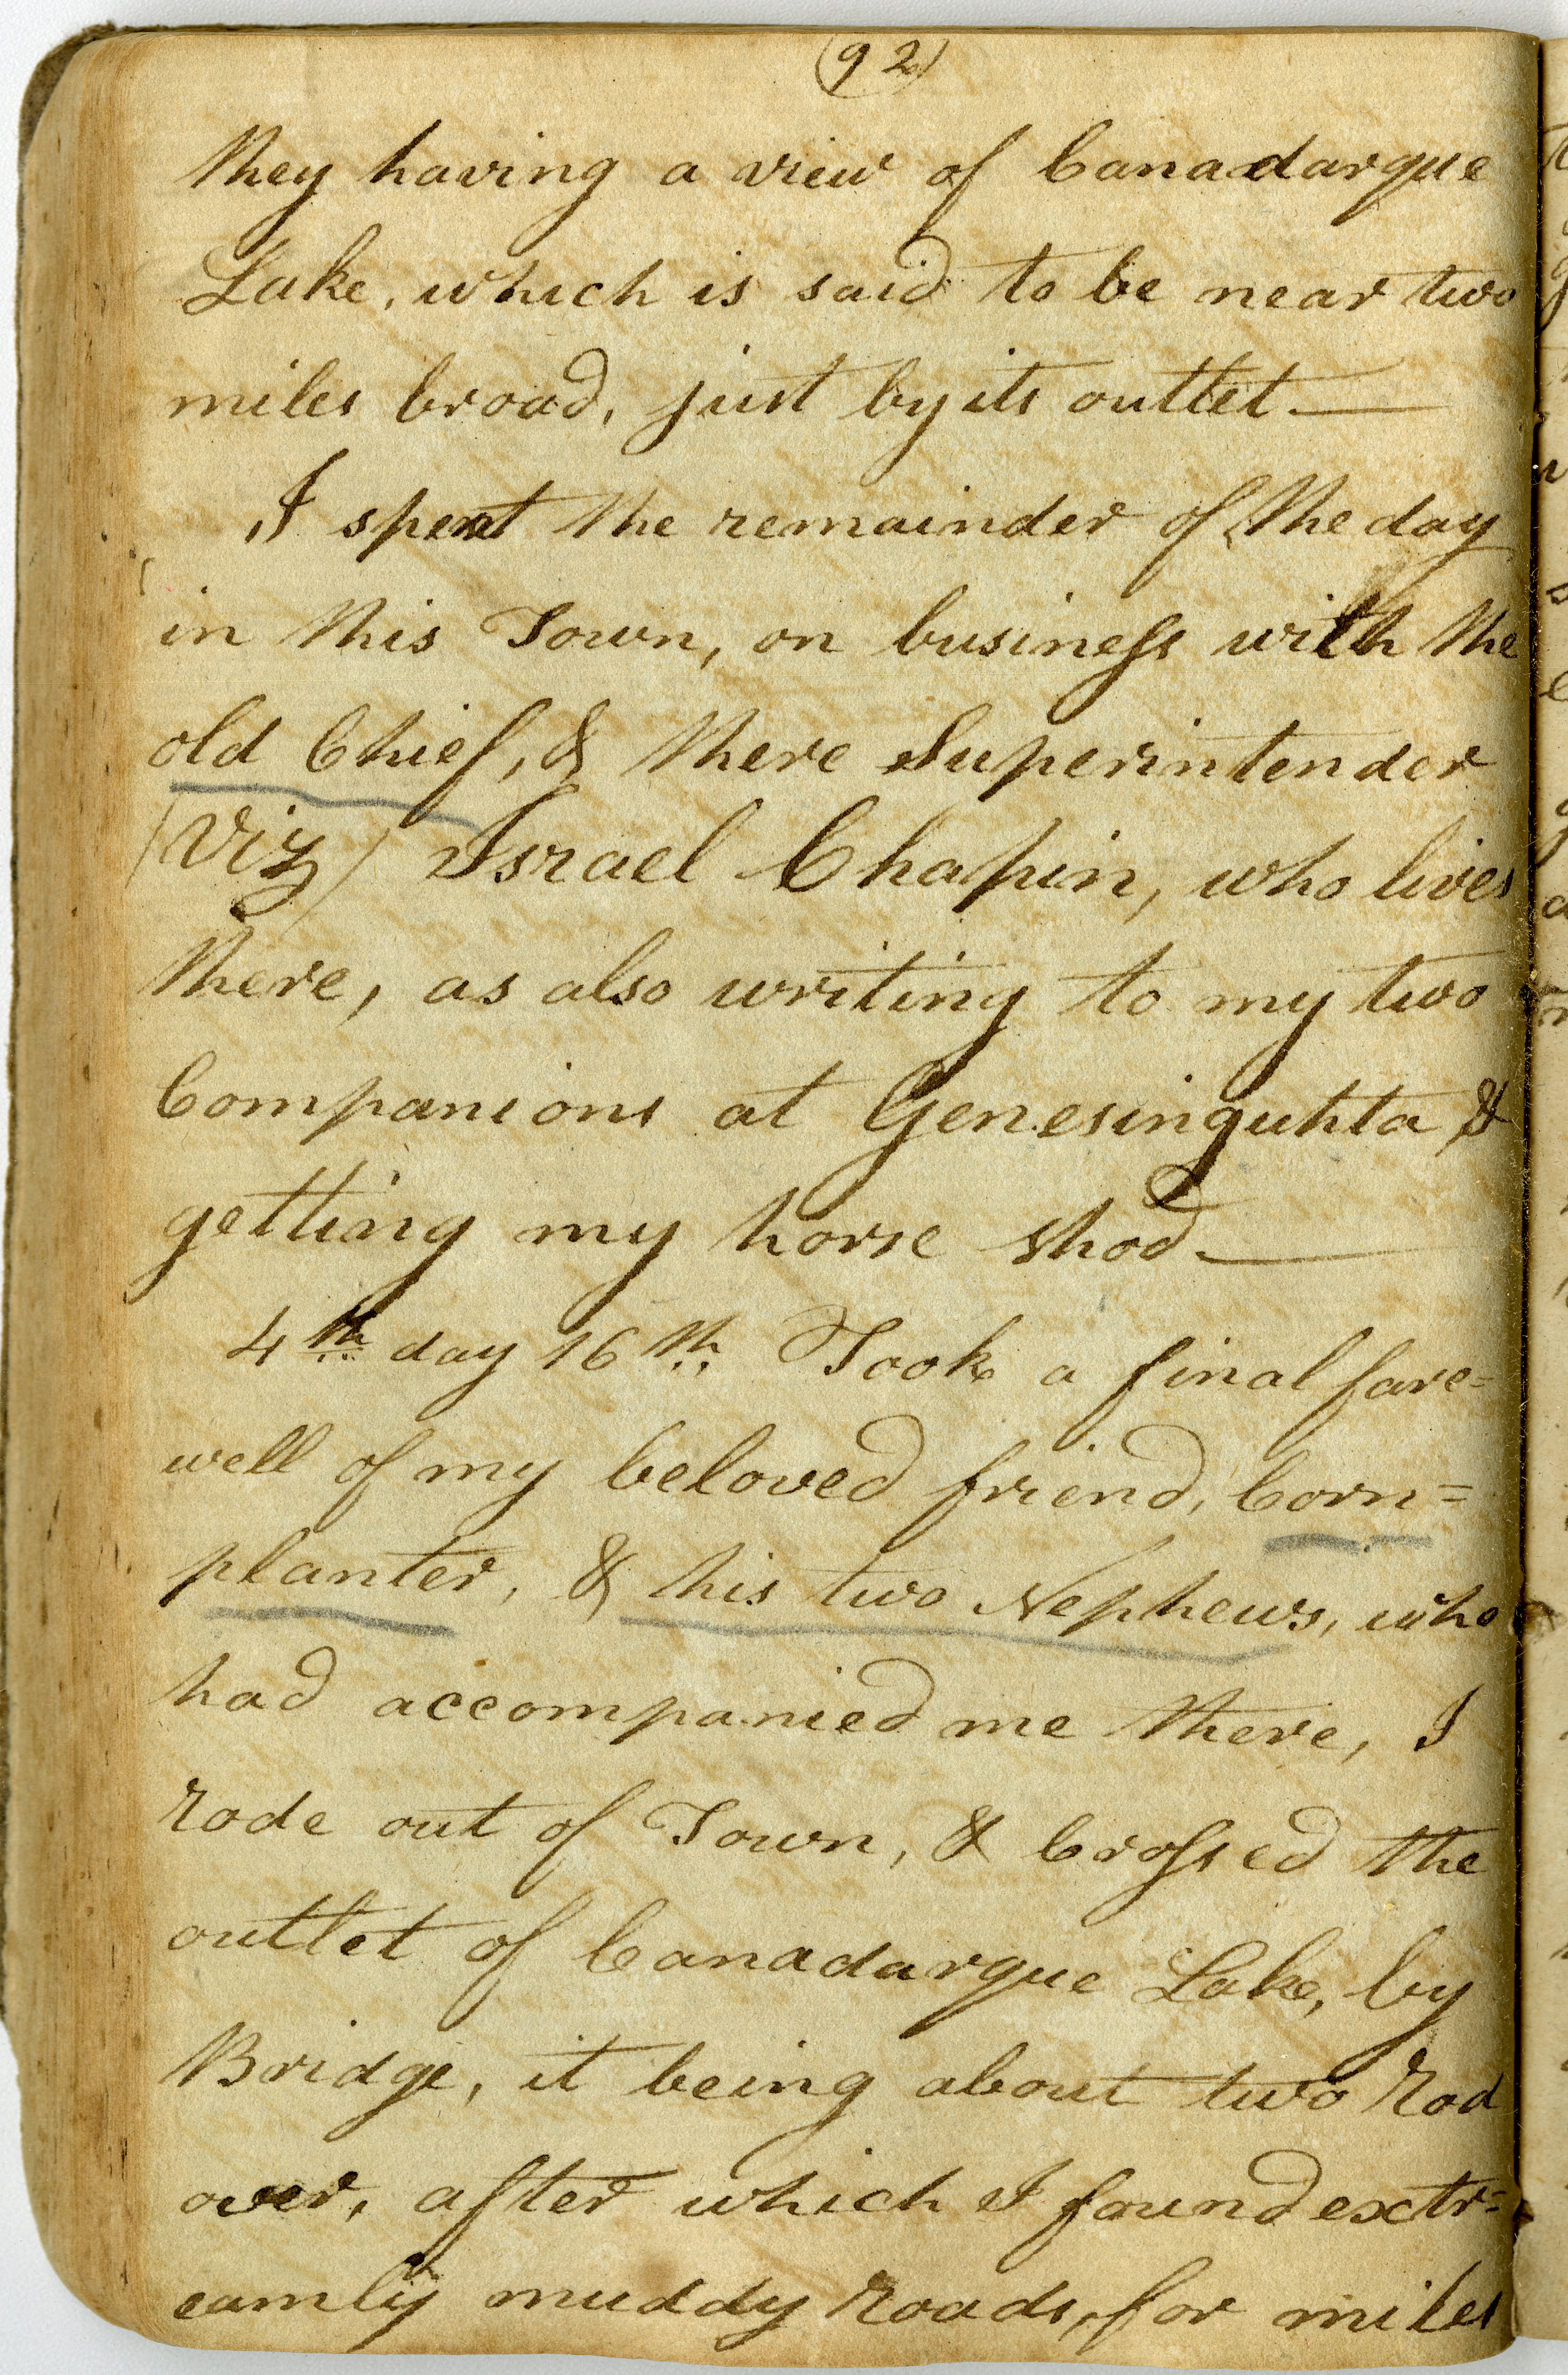 (92)
they having a view of Canadarque
Lake, which is said to be near two
miles broad, just by its outlet.—
I spent the remainder of the day
in this Town, on business with the
old Chief, & there Superintender
(Viz) Israel Chapin, who lives
there, as also writing to my two
Companions at Genesinguhta &
getting my horse shod—
4th day 16th. Took a final fare=
well of my beloved friend, Corn=
planter, & his two Nephews, who
had accompanied me there, I
rode out of Town, & Crossed the
outlet of Canadarque Lake, by
Bridge, it being about two Rod
over, after which I found extr=
eamly muddy Roads, for miles